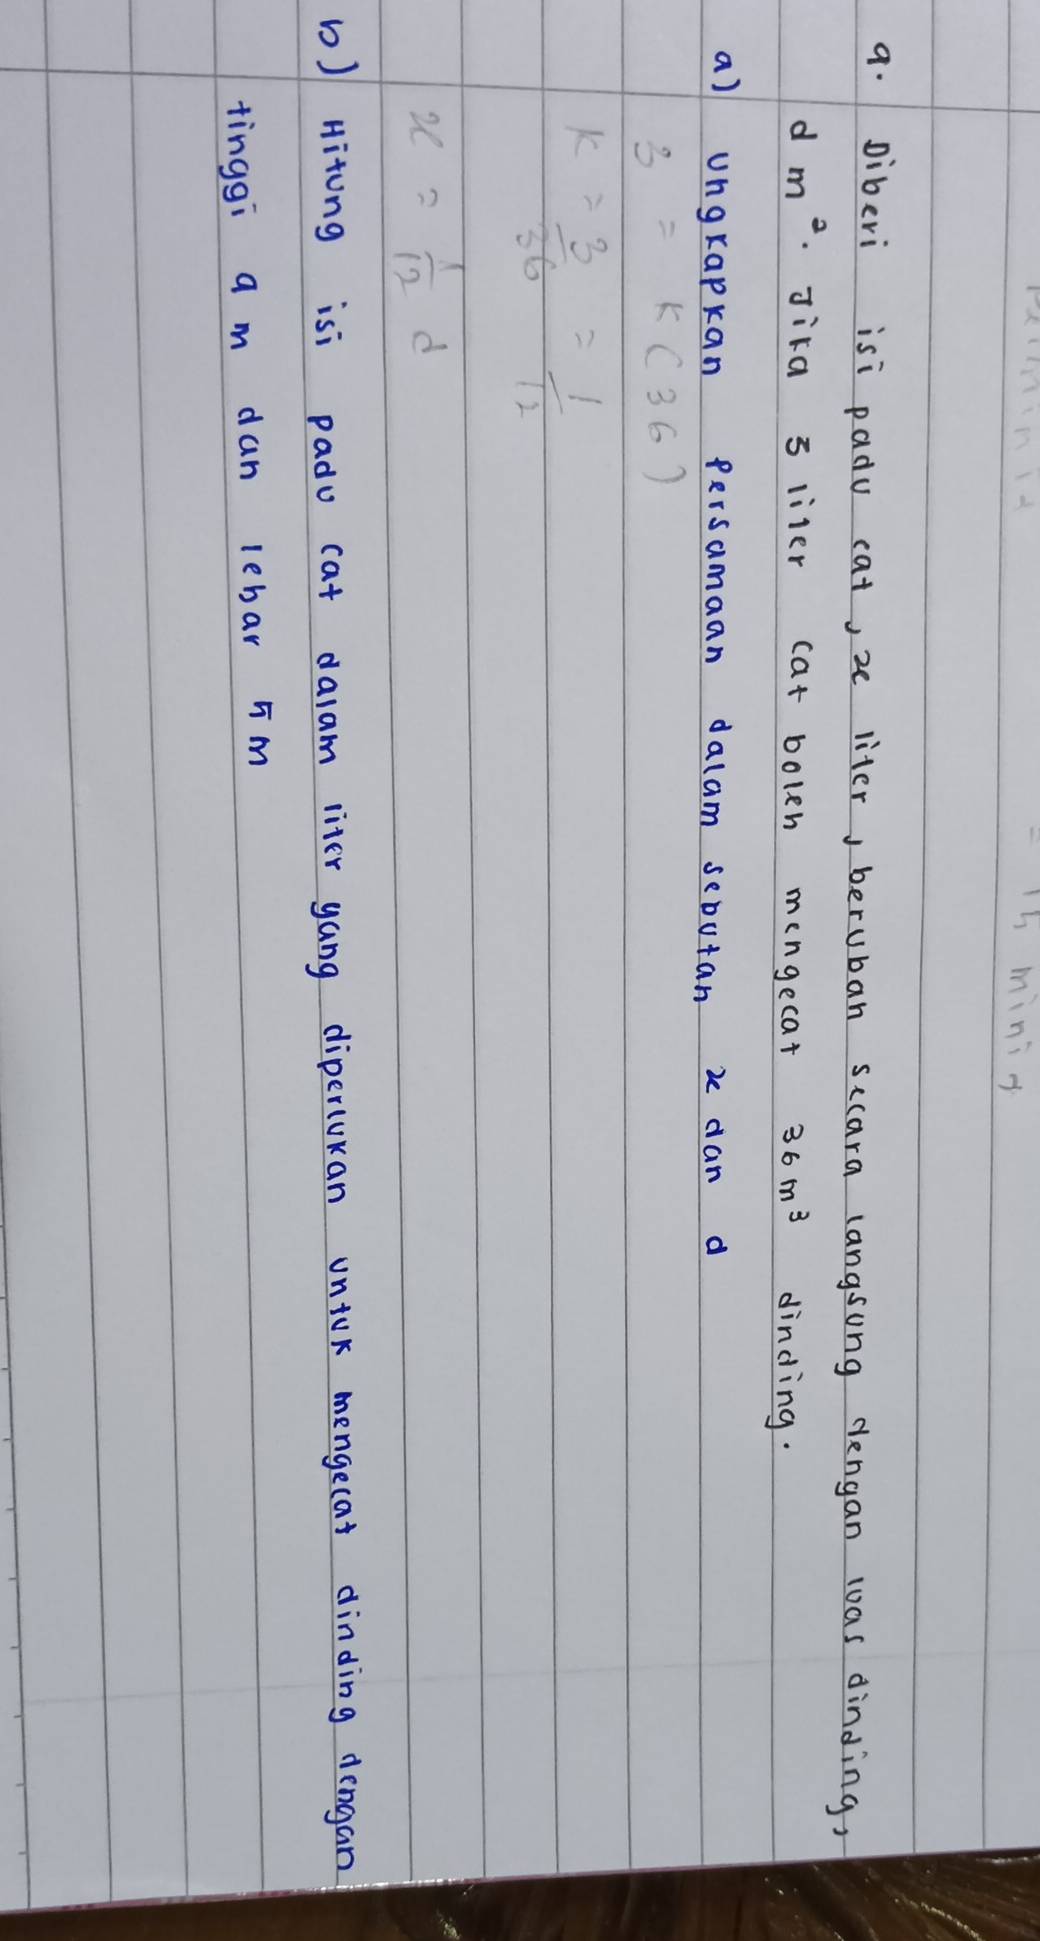 = 15 minit
9. Diberi isi padu cat, x liter, berubah secara langsung dengan luas dinding,
d m². Jika 3 liter cat boleh mengecat 36 m³ dinding.
a) Ungkapkan Persamaan dalam sebutan x dan d
3 = k(36)
k = 3/36 = 1/12
x = 1/12 d
b) Hitung isi padu cat dalam liter yang diperlukan untuk mengecat dinding dengan
tinggi 9 m dan lebar 5 m